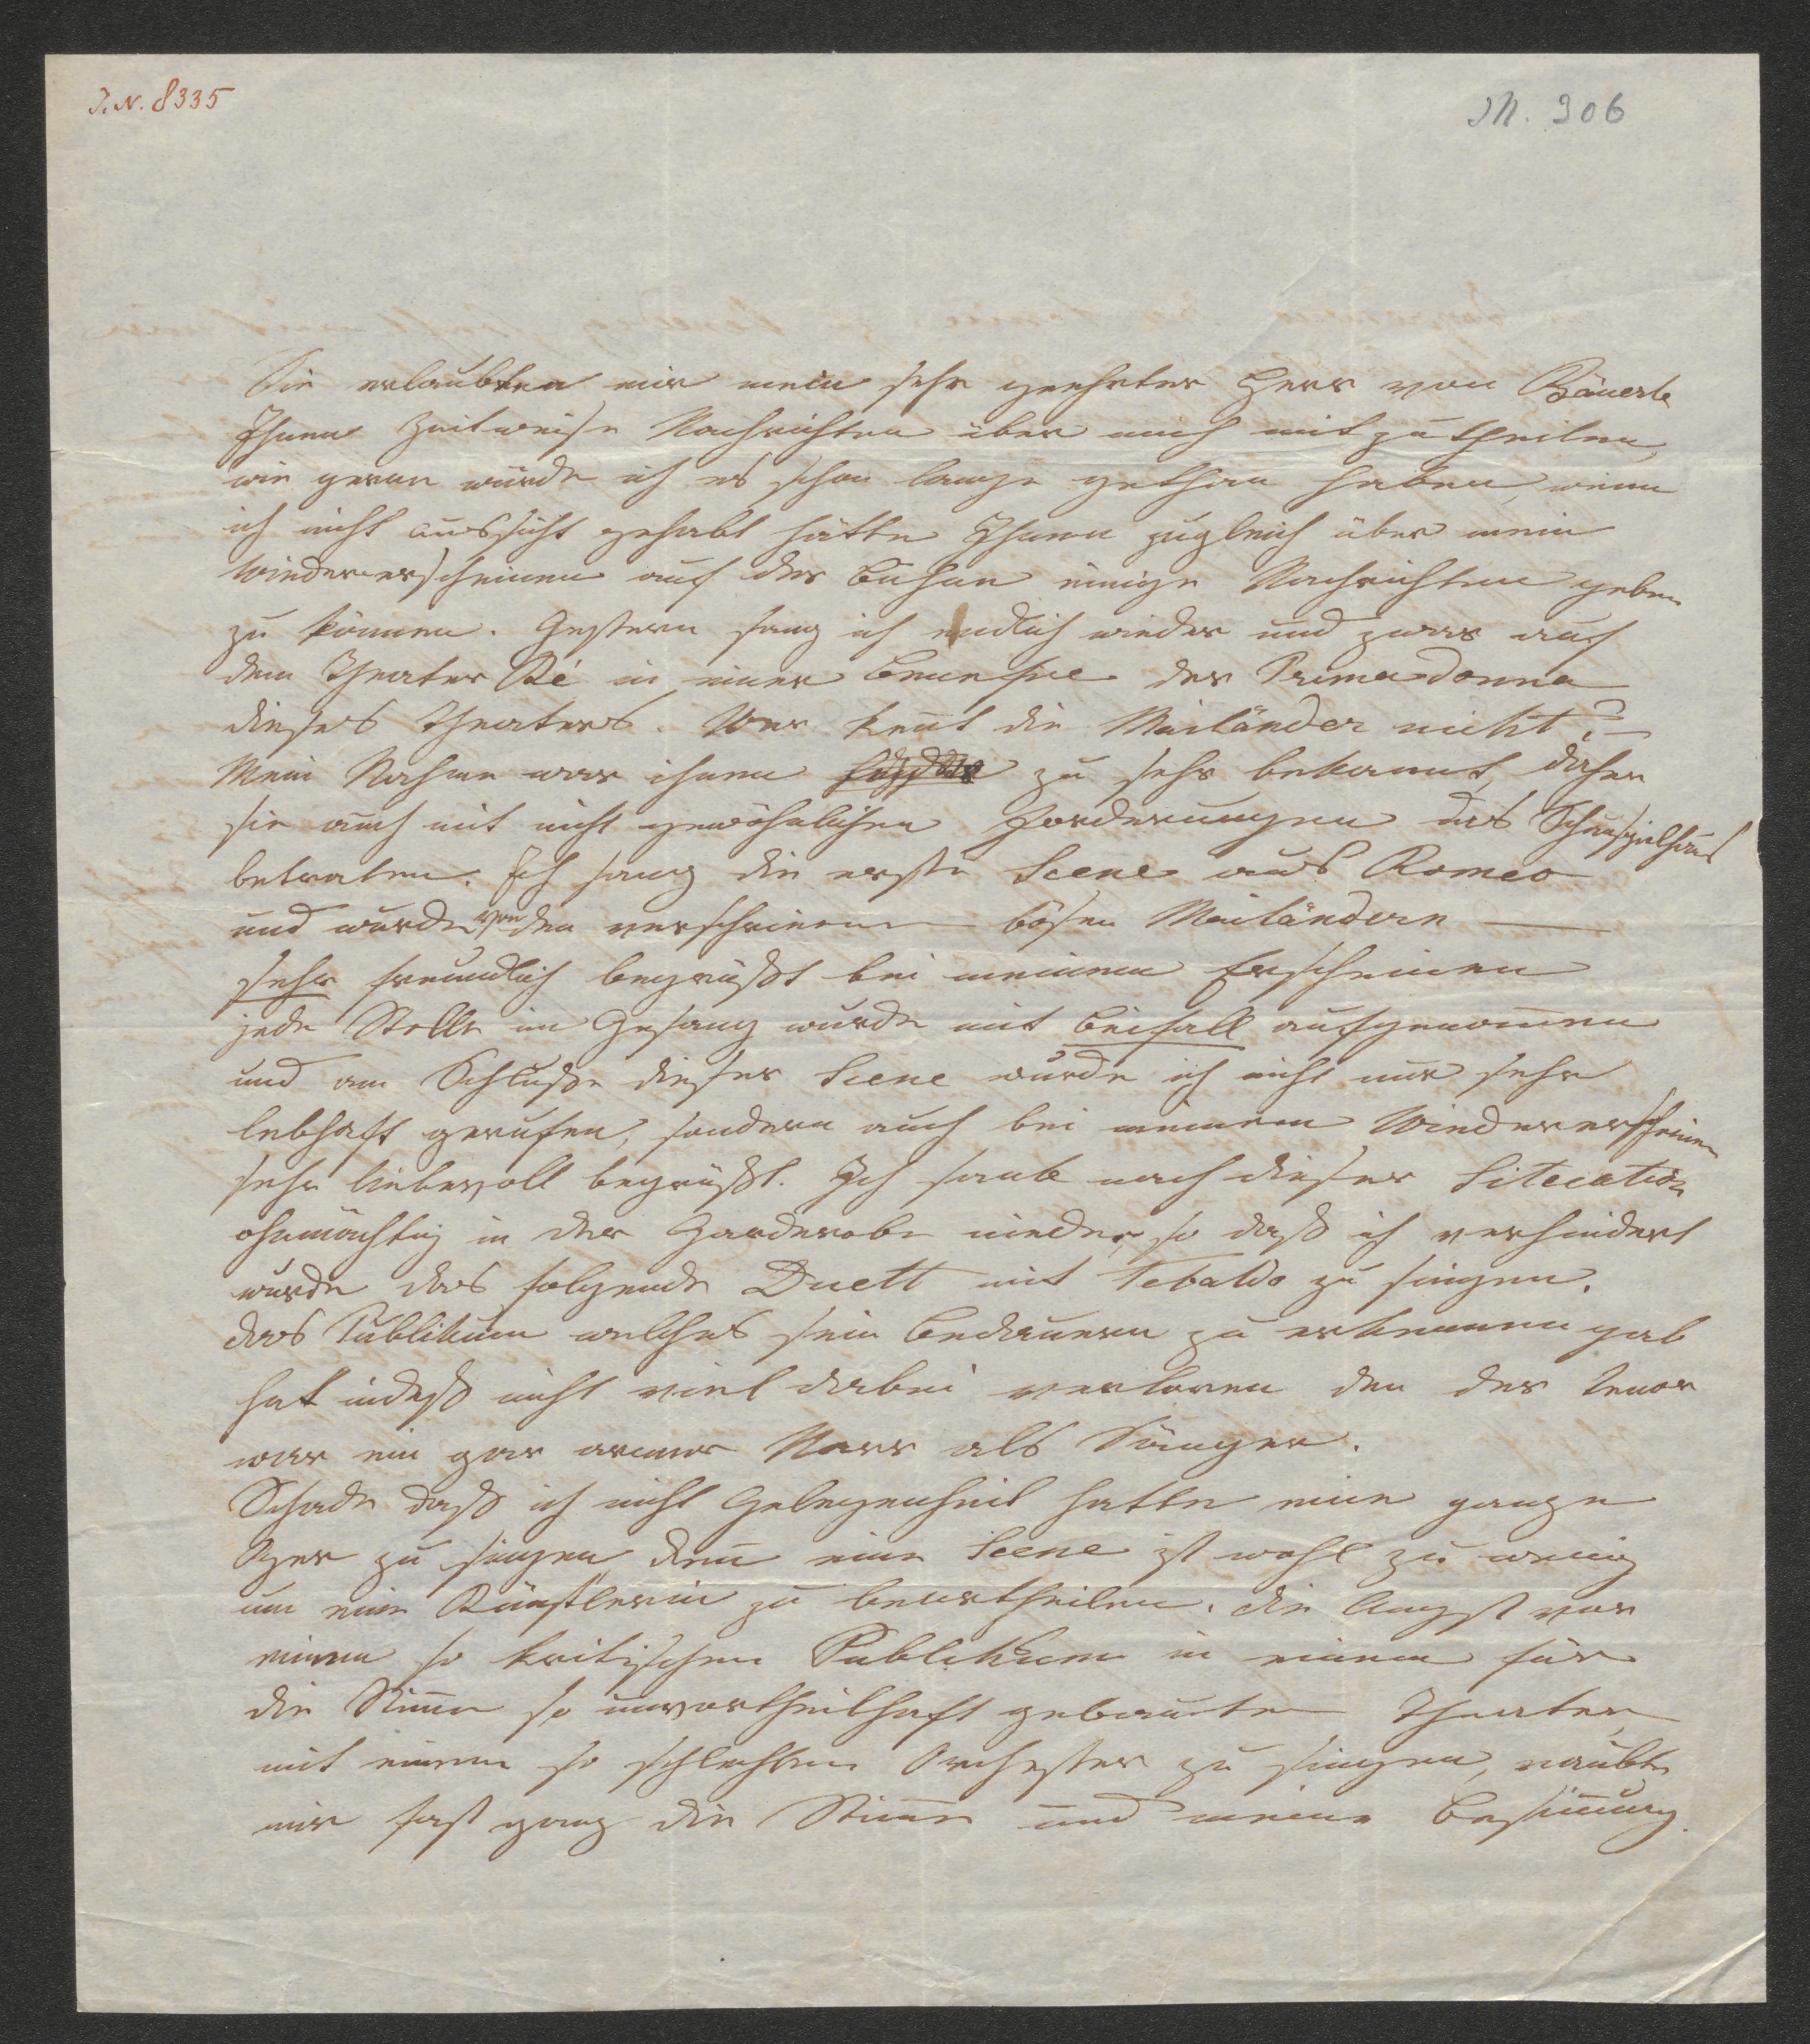 J. N. 8335
M. 306
Sie erlaubten mir mein sehr geehrter Herr von Bäuerle
Ihnen zeitweise Nachrichten über mich mitzutheilen,
wie gerne würde ich es schon lange gethan haben, wenn
ich nicht aussicht gehabt hätte Ihnen zugleich über mein
Wiedererscheinen auf der Bühne einige Nachrichten geben
zu können. Gestern sang ich endlich wieder und zwar auf
dem Theater Ré in einer Benefice der Primadonna
dieses Theaters. Wer kent die Mailänder nicht?
Mein Nahme war ihnen zu sehr bekannt, daher
sie auch mit nicht gewöhnlichen Forderungen das Schauspielhaus
betraten. Ich sang die erste Scene aus Romeo
und wurde von den verschrieenen bösen Mailändern —
sehr freundlich begrüßt bei meinem Erscheinen
jede Stelle im Gesang wurde mit Beifall aufgenomen
und am Schluße dieser Scene wurde ich nicht nur sehr
lebhaft gerufen, sondern auch bei meinem Wiedererscheinen
sehr liebevoll begrüßt. Ich sank nach dieser Situation
ohnmächtig in der Garderobe nieder, so daß ich verhindert
wurde das folgende Duett mit Tebaldo zu singen.
das Publikum welches sein Bedauern zu erkennen gab
hat indeß nicht viel dabei verloren den der Tenor
war ein gar armer Narr als Sänger.
Schade daß ich nicht Gelegenheit hatte eine ganze
Oper zu singen den eine Scene ist wohl zu wenig
um eine Künstlerin zu beurtheilen. die Angst vor
einem so kritischen Publikum in einem für
die Stime so unvortheilhaft gebauten Theater,
mit einem so schlechten Orchester zu singen, raubte
mir fast ganz die Stime und meine Besinung.